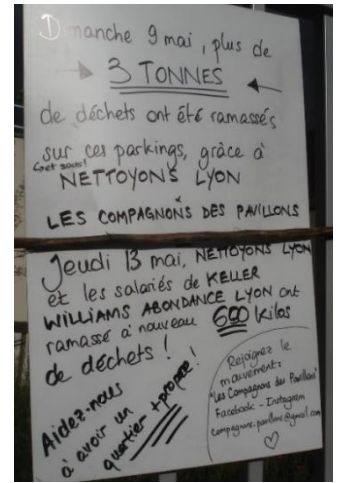 Dimanche 9 mai, plus de
→ 3 TONNES ←
de déchets ont été ramassés
sur ces parkings, grâce à
NETTOYONS LYON
LES COMPAGNONS DES PAVILLONS
Jeudi 13 mai, NETTOYONS LYON
et les salariés de KELLER
WILLIAMS ABONDANCE LYON ont
ramassé à nouveau 600 kilos
de déchets !
Aidez-nous
à avoir un
quartier + propre !
Rejoignez le
mouvement :
"Les Compagnons des Pavillons"
Facebook - Instagram